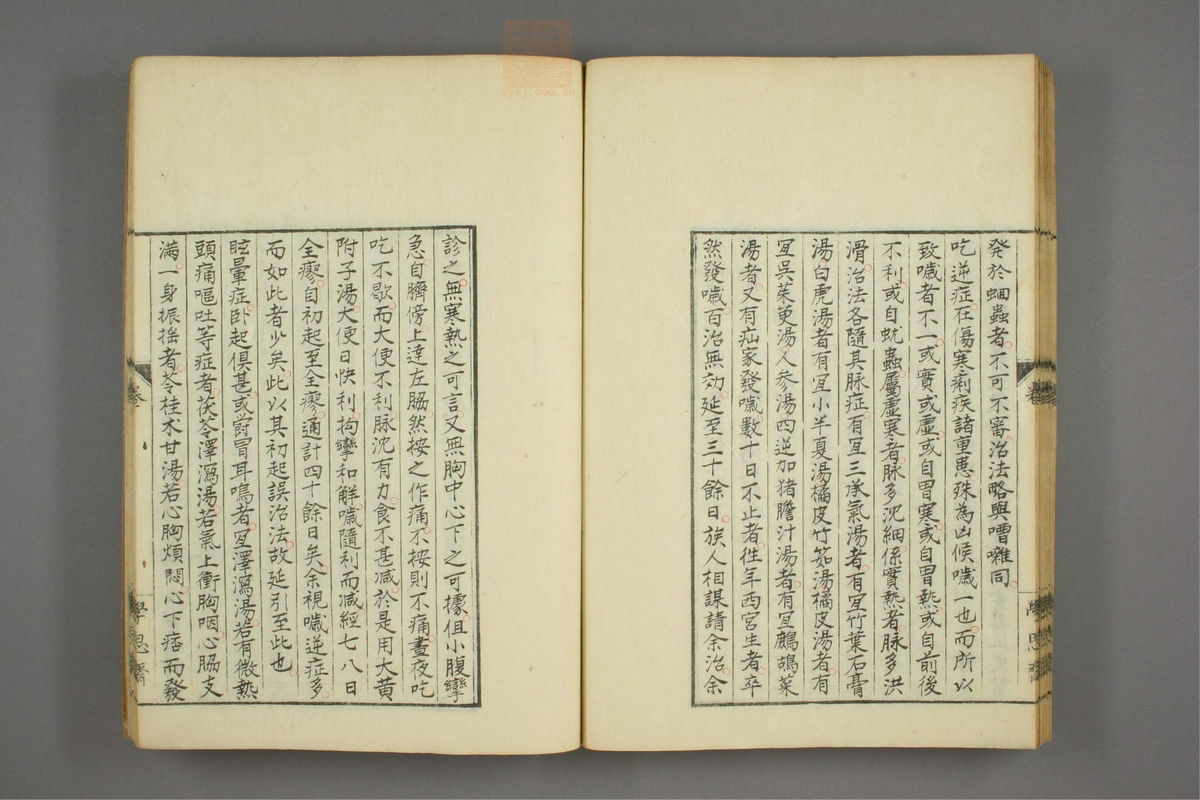 発於蛔蟲者不可不審治法略與嘈囃同
吃逆症在傷寒痢疾諸重患殊為凶候噦一也而所以
致噦者不一或實或虛或自胃寒或自胃熱或自前後
不利或自蚘蟲屬虛寒者脉多沈細係實熱者脉多洪
滑治法各隨其脉症有宜三承氣湯者有宜竹葉石膏
湯白虎湯者有宜小半夏湯橘皮竹茹湯橘皮湯者有
宜吳茱萸湯人參湯四逆加猪膽汁湯者有宜鷓鴣菜
湯者又有疝家發噦數十日不止者徃年西宮生者卒
然發噦百治無効延至三十餘日族人相謀請余治余
診之無寒熱之可言又無胸中心下之可據但小腹攣
急自臍傍上達左脇然按之作痛不按則不痛晝夜吃
吃不歇而大便不利脉沈有力食不甚減於是用大黄
附子湯大便日快利拘攣和解噦隨利而减經七八日
全癮自初起至全瘳通計四十餘日矣余視噦逆症多
而如此者少矣此以其初起誤治法故延引至此也
眩暈症卧起俱甚或欝冒耳鳴者宜澤瀉湯若有微熱
頭痛嘔吐等症者茯苓澤瀉湯若氣上衝胸咽心脇支
滿一身振揺者苓桂朮甘湯若心胸煩悶心下痞而發
學思齋